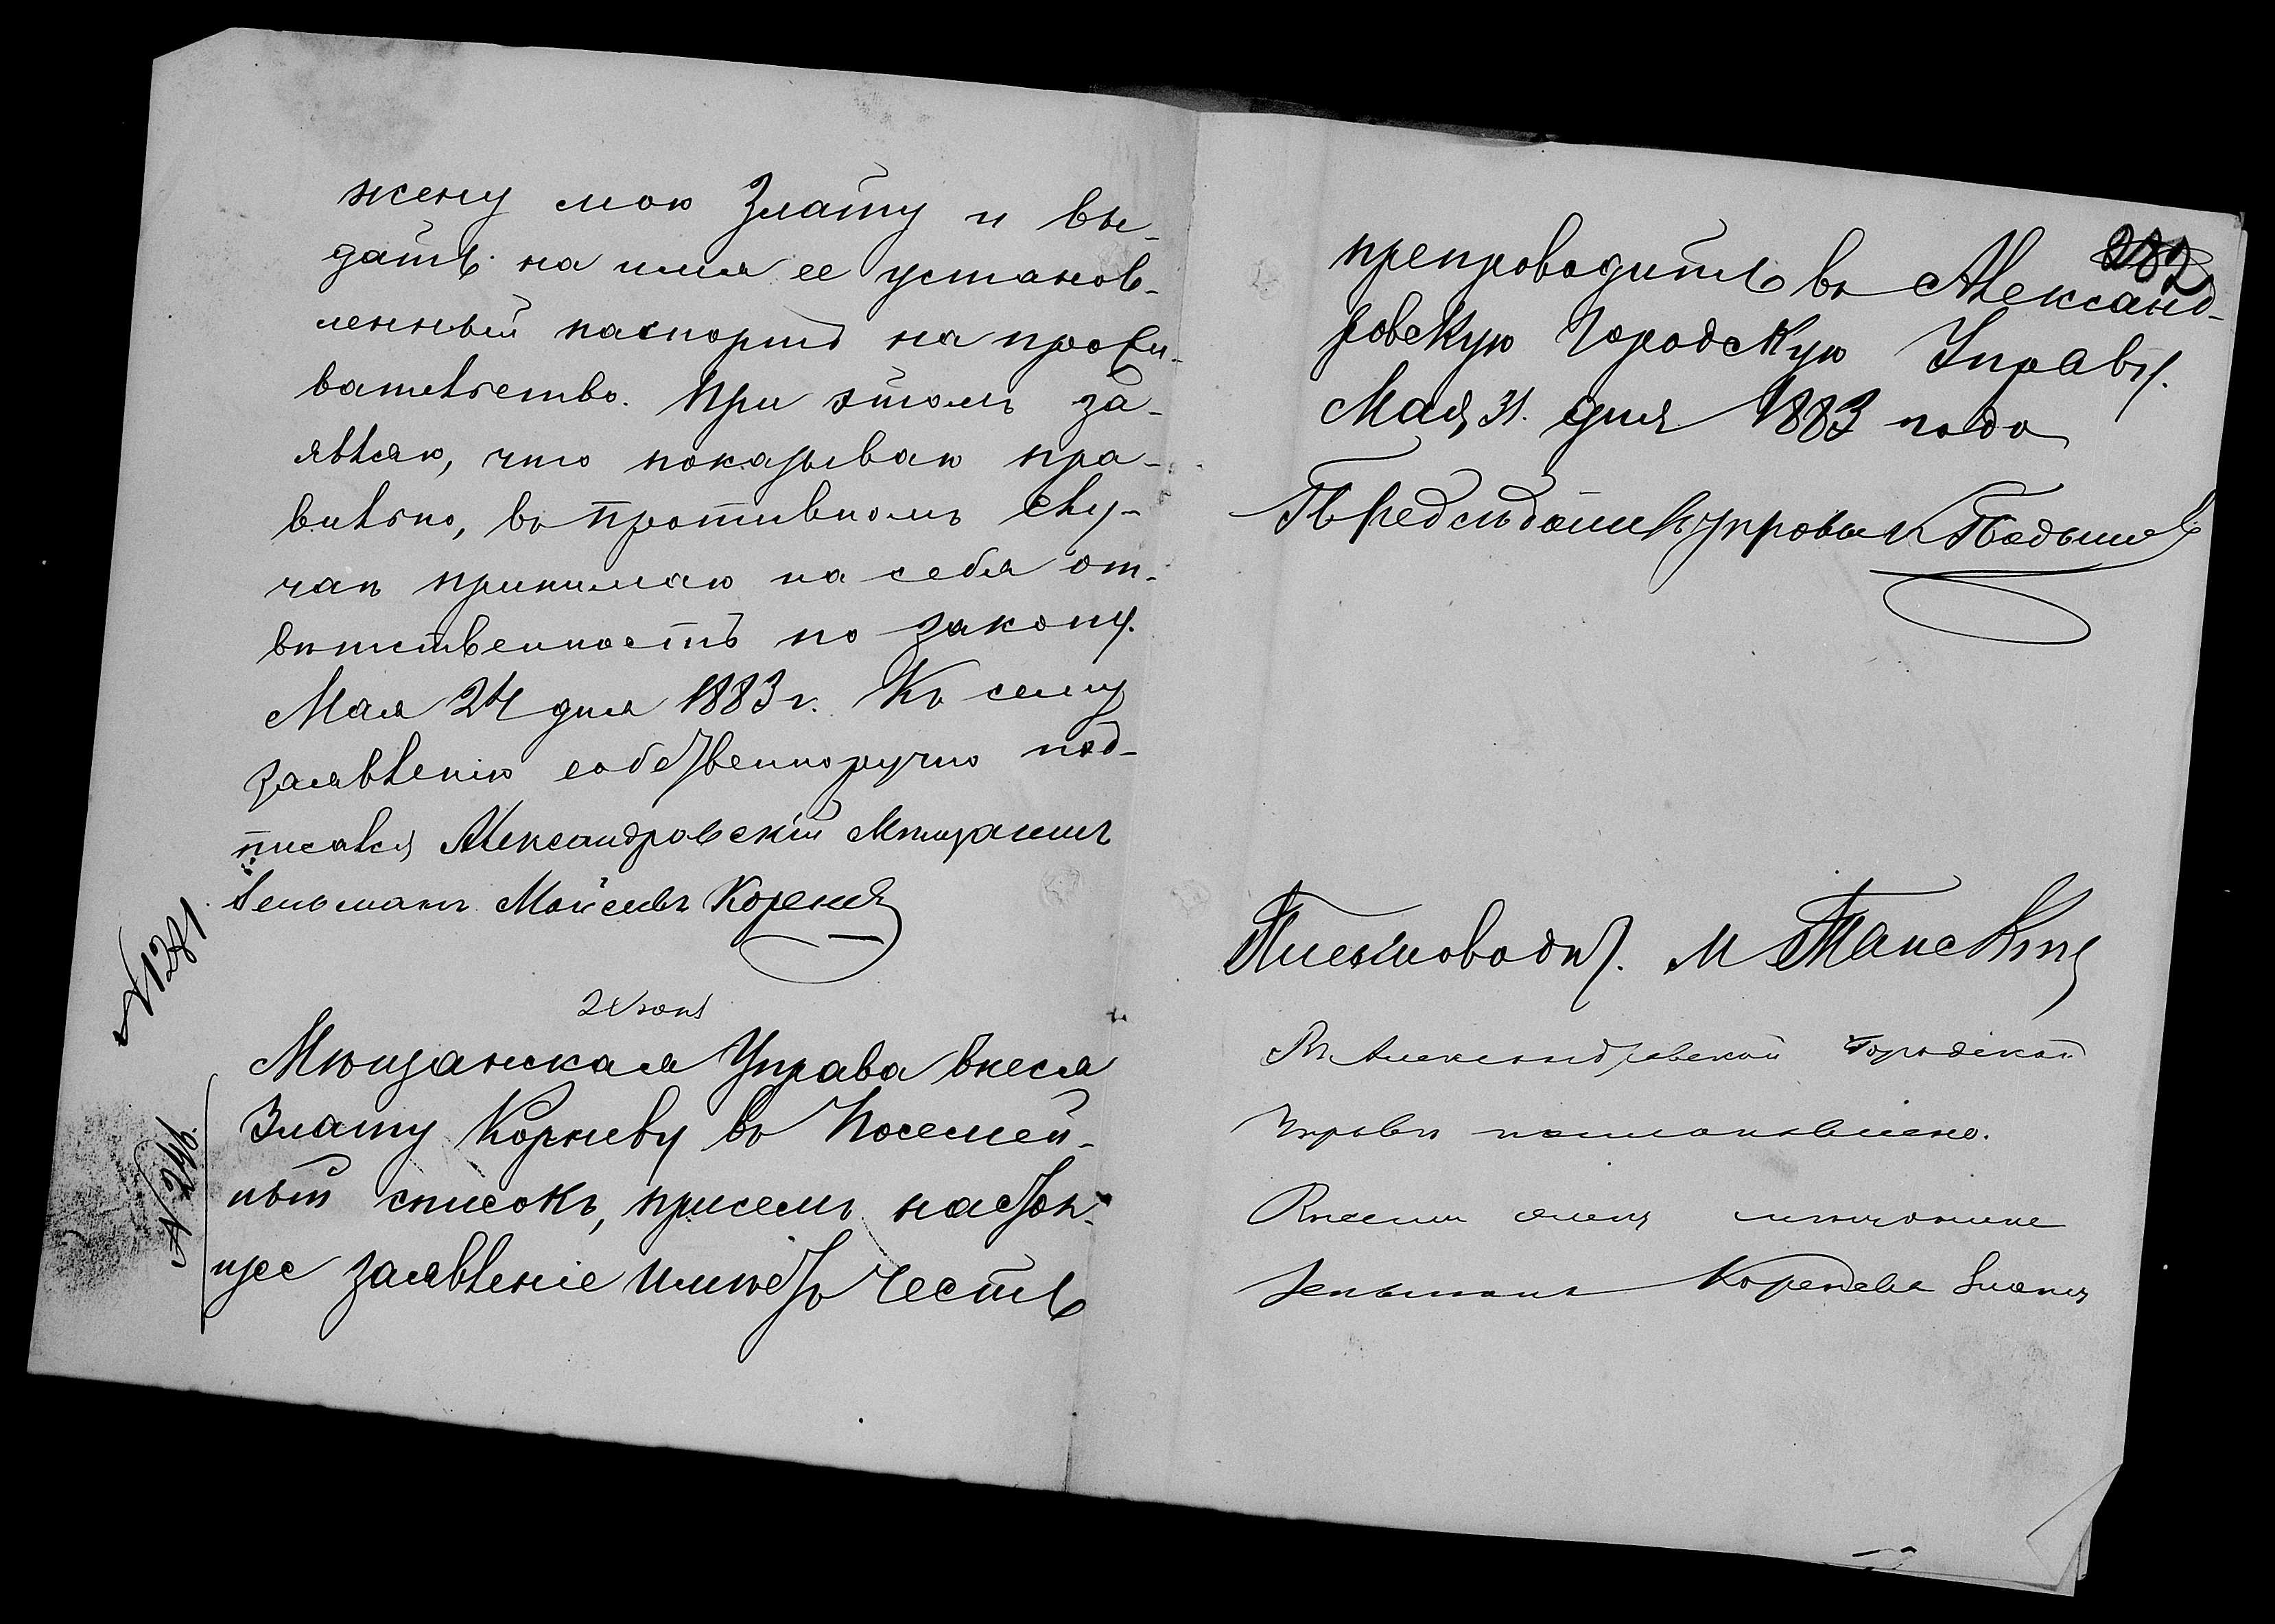 жену мою Злату и вы-
дать на имя ее установ-
ленный паспортъ на прожи-
вательство. При этомъ за-
являю, что показываю пра-
вильно, въ противномъ слу-
чаѣ принимаю на себя от-
вѣтственность по закону.
Мая 24 дня 1883 г. Къ сему
заявленію собственноручно под-
писался Александровскій Мѣщанинъ
Зельманъ Мойсеевъ Кореневъ
№ 1281
2 Іюня
Мѣщанская Управа внеся
Злату Корневу въ Посемей-
ный списокъ, при семъ настоя-
щее заявленіе имѣетъ честь
№ 246.
282
препроводить въ Александ-
ровскую Городскую Управу.
Мая 31. дня 1883 года
Предсѣдатель управы
Письмовод. М
Въ Александровской Городской
Управѣ постановлено.
Внесть жену мѣщанина
Зельмана Коренева Злату